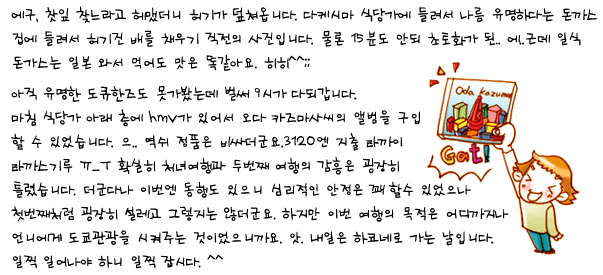 에구, 찻잎 찾느라고 허맸더니 허기가 덮쳐옵니다. 다케시마 식당가에 들러서 나름 유명하다는 돈까스
집에 들려서 허기진 배를 채우기 직전의 사진입니다. 물론 15분도 안되 초토화가 된.. 에.근데 일식
돈가스는 일본 와서 먹어도 맛은 똑같아요. 히히^^;;
아직 유명한 도큐한즈도 못가봤는데 벌써 9시가 다되갑니다.
마침 식당가 아래 층에 hmv가 있어서 오다 카즈마사씨의 앨범을 구입
할 수 있었습니다. 으.. 역쉬 정품은 비싸더군요.3120엔 지출 라까이
라까스기루 ㅠ_ㅜ 확실히 처녀여행과 두번째 여행의 감흥은 굉장히
틀렸습니다. 더군다나 이번엔 동행도 있으니 심리적인 안정은 꽤 할수 있었으나
첫번째처럼 굉장히 설레고 그렇지는 않더군요. 하지만 이번 여행의 목적은 어디까지나
언니에게 도쿄관광을 시켜주는 것이었으니까요. 앗. 내일은 하코네로 가는 날입니다.
일찍 일어나야 하니 일찍 잡시다. ^^
Oda Kazuma
Gat!